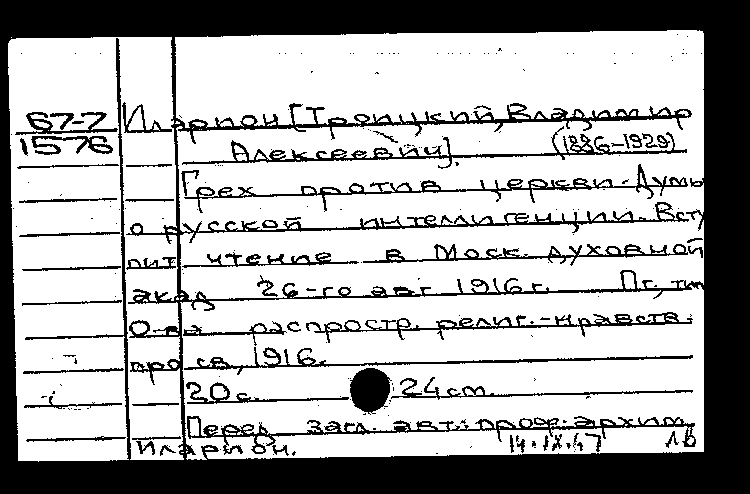 67-7
1576
Иларион [Троицкий, Владимир
Алексеевич]. (1886-1929)
Грех против церкви. Думы
о русской интеллигенции. Всту
пит чтение в Моск. духовной
акад 26-го авг 1916 г. Пг, тип
О-ва распростр. религ.-нравств.
просв, 1916.
20 с. 24 cm.
Перед загл. авт.: проф. архим.
Иларион.
14.IX.67 ЛБ